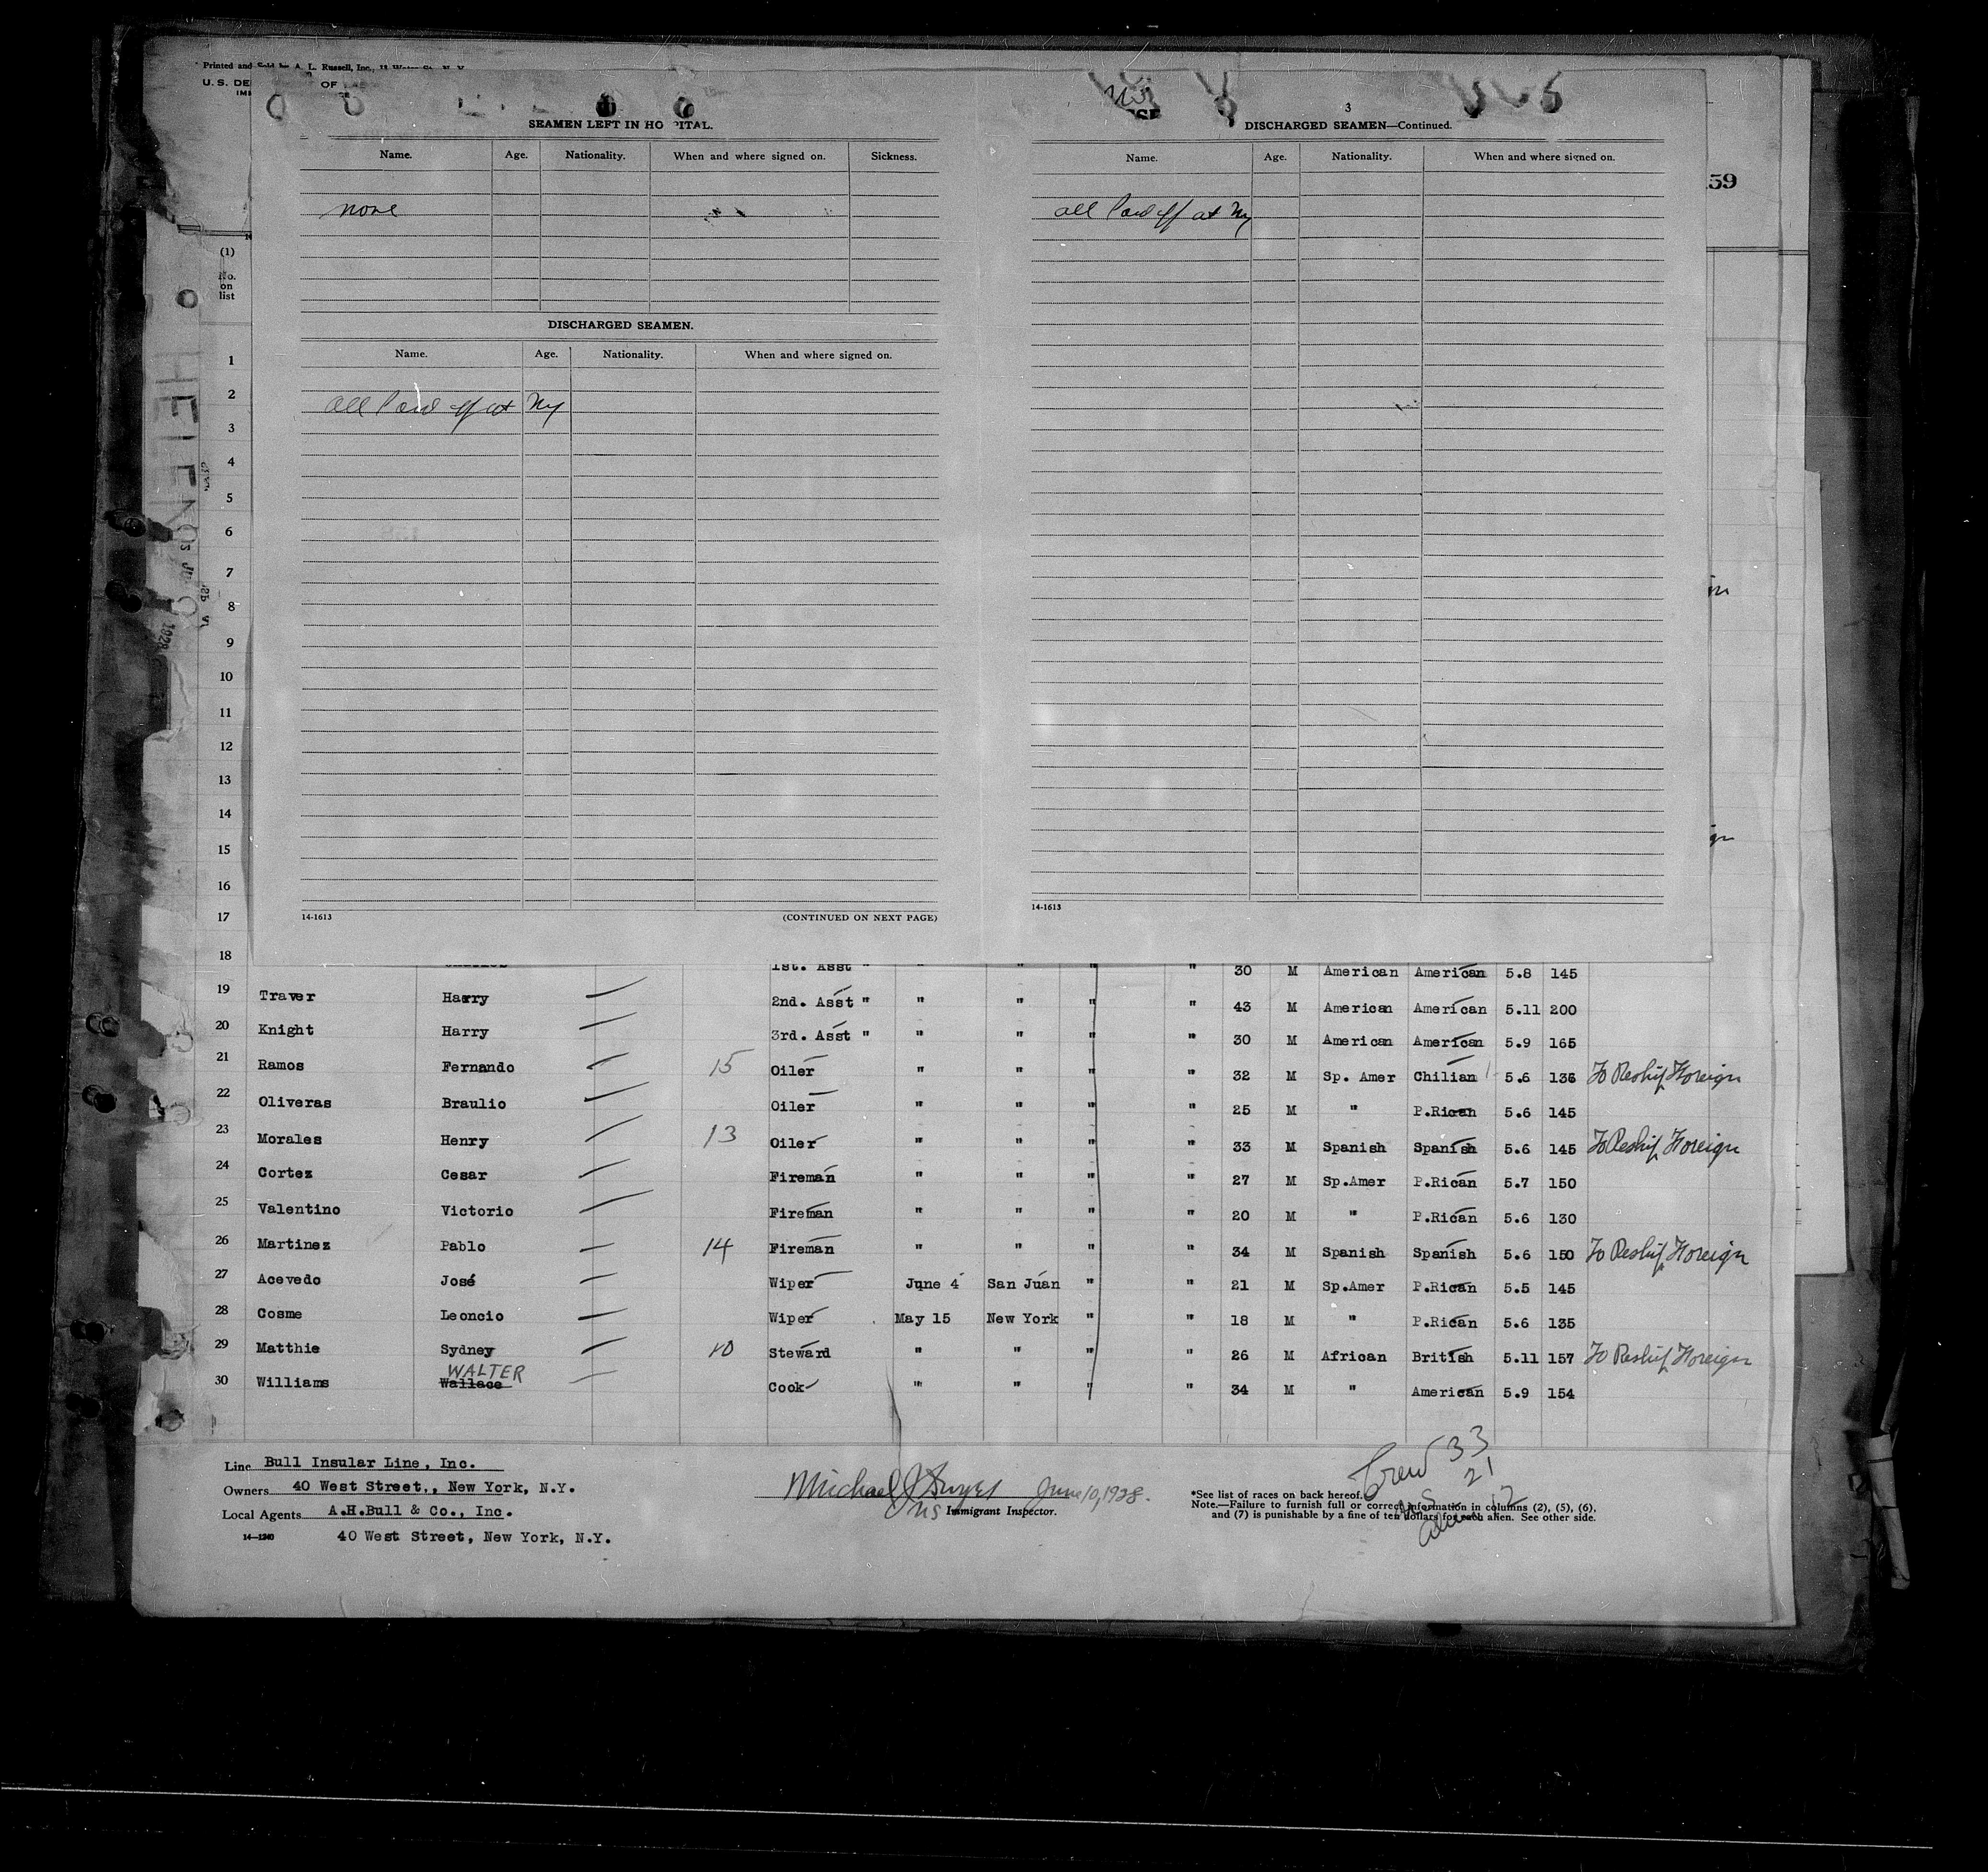 Printed and Sold by A. L. Russell, Inc., 11 Water St. N. Y.
U. S. DE OF
3
SEAMEN LEFT IN HO PITAL.
Name. Age. Nationality. When and where signed on. Sickness.
none
DISCHARGED SEAMEN.
Name. Age. Nationality. When and where signed on.
all Paid off at Ny
14-1613 (CONTINUED ON NEXT PAGE)
DISCHARGED SEAMEN—Continued.
Name. Age. Nationality. When and where signed on.
all Paid off at Ny
14-1613
59
(1)
No.
on
list
1
2
3
4
5
6
7
8
9
10
11
12
13
14
15
16
17
18 1st. Asst " " " " " 30 M American American 5.8 145
19 Traver Harry 2nd. Asst " " " " " 43 M American American 5.11 200
20 Knight Harry 3rd. Asst " " " " " 30 M American American 5.9 165
21 Ramos Fernando 15 Oiler " " " " 32 M Sp. Amer Chilian 5.6 136 To Reship Foreign
22 Oliveras Braulio Oiler " " " " 25 M " P.Rican 5.6 145
23 Morales Henry 13 Oiler " " " " 33 M Spanish Spanish 5.6 145 To Reship Foreign
24 Cortez Cesar Fireman " " " " 27 M Sp.Amer P.Rican 5.7 150
25 Valentino Victorio Fireman " " " " 20 M " P.Rican 5.6 130
26 Martinez Pablo 14 Fireman " " " " 34 M Spanish Spanish 5.6 150 To Reship Foreign
27 Acevedo José Wiper June 4 San Juan " " 21 M Sp.Amer P.Rican 5.5 145
28 Cosme Leoncio Wiper May 15 New York " " 18 M " P.Rican 5.6 135
29 Matthie Sydney 10 Steward " " " " 26 M African British 5.11 157 To Reship Foreign
WALTER
30 Williams Wallace Cook " " " " 34 M " American 5.9 154
Line Bull Insular Line, Inc.
Owners 40 West Street,, New York, N.Y.
Local Agents A.H.Bull & Co., Inc.
14—1240 40 West Street, New York, N.Y.
Michael J Dwyer June 10, 1928.
US Immigrant Inspector.
Crew 33
21
12
*See list of races on back hereof.
Note.—Failure to furnish full or correct information in columns (2), (5), (6),
and (7) is punishable by a fine of ten dollars for each alien. See other side.